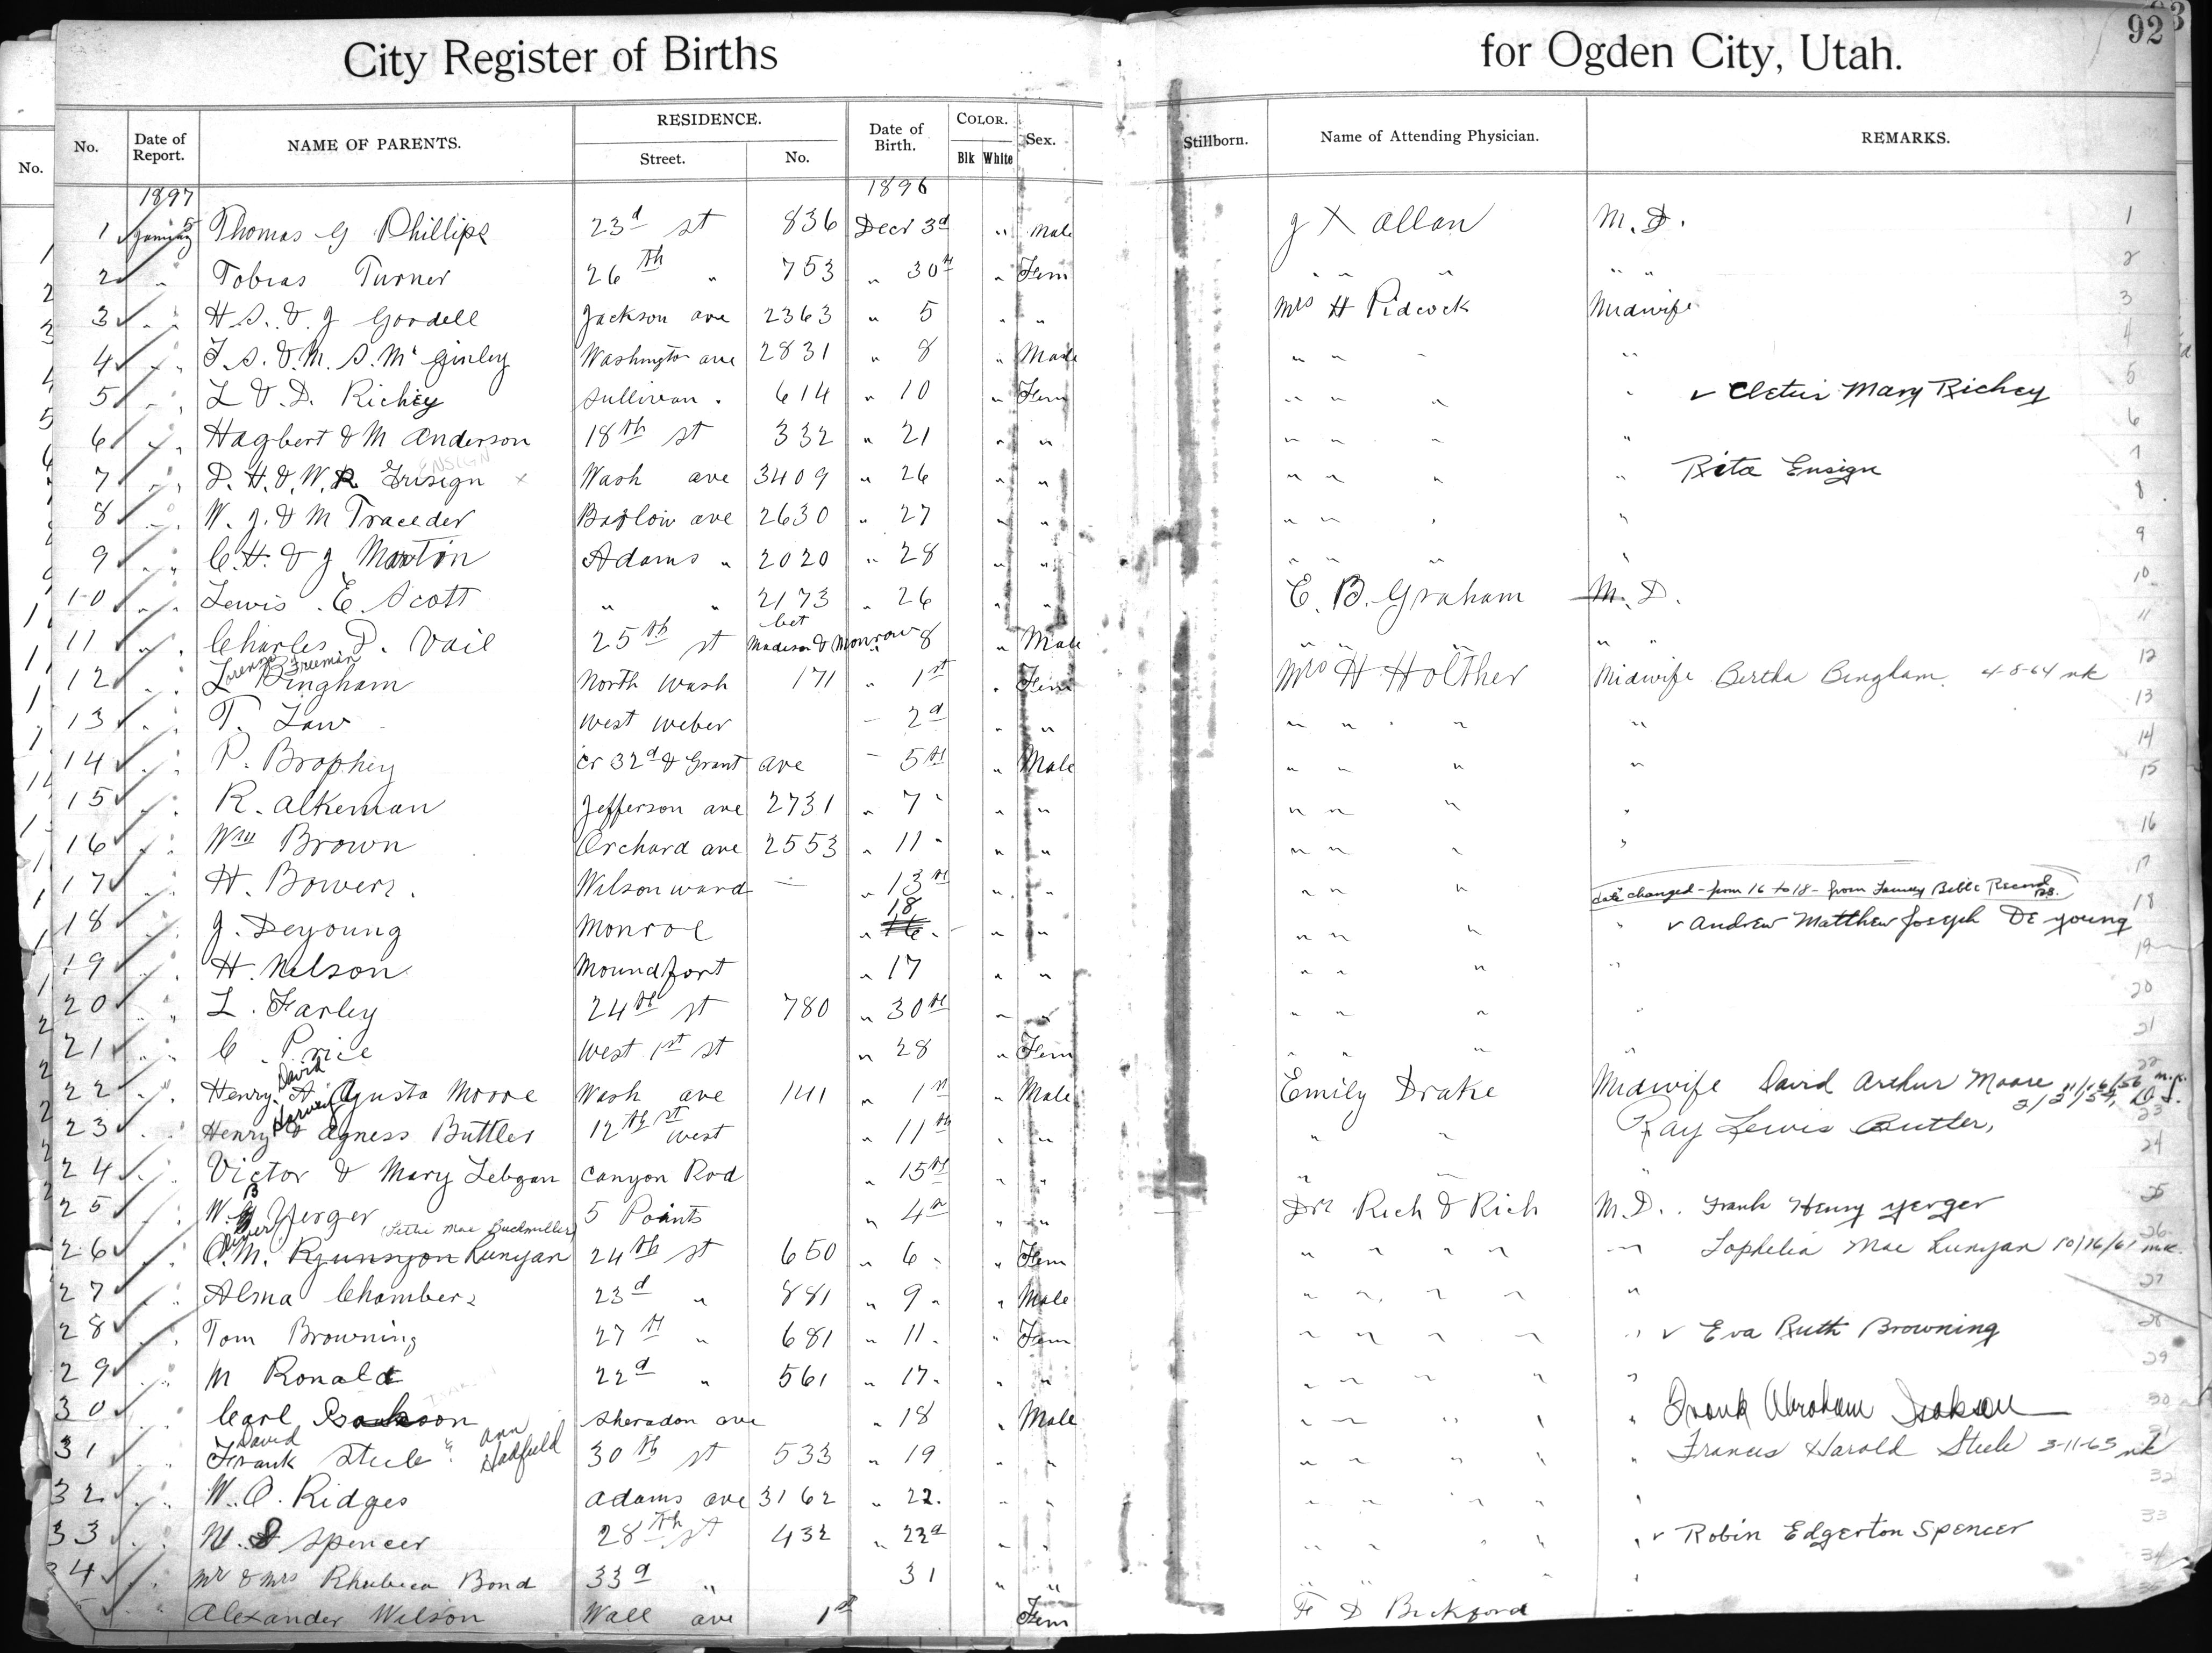 City Register of Births for Ogden City, Utah. 92
No. Date of Report. NAME OF PARENTS. RESIDENCE. Street. No. Date of Birth. COLOR. Blk White Sex. Stillborn. Name of Attending Physician. REMARKS.
1897 1896
1 5 Thomas G Phillips 23d st 836 Decr 3d " Male J X Allan M.D. 1
2 " Tobias Turner 26th " 753 " 30th " Fem " " " " " 2
3 " " H S. & J Goodell Jackson ave 2363 " 5 " " Mrs H Pidcock Midwife 3
4 " " F. S. & M. S. McGinley Washington ave 2831 " 8 " Male " " " " 4
5 " " L & D. Richey Sullivan " 614 " 10 " Fem " " " " v Cletus Mary Richey 5
6 " " Hagbert & M Anderson 18th st 332 " 21 " " " " " " 6
ENSIGN
7 " " D. H. & W. R. Ensign x Wash ave 3409 " 26 " " " " " " Rita Ensign 7
8 " " W. J. & M Traceder Barlow ave 2630 " 27 " " " " " " 8
9 " " C. H. & J Martin Adams " 2020 " 28 " " " " " " 9
10 " " Lewis E. Scott " " 2173 " 26 " " E. B. Graham M. D. 10
11 " " Charles D. Vail 25th st bet Madison & Monroe " 8 " Male " " " " " 11
Lorenzo Freeman
12 " " L Bingham North Wash 171 " 1st " Fem Mrs H Holther Midwife Bertha Bingham 4-8-64 nk 12
13 " " T. Law West Weber - 2d " " " " " " 13
14 " " P. Brophy cr 32d & Grant ave - 5th " Male " " " " 14
15 " " R. Alkeman Jefferson ave 2731 " 7 " " " " " " " 15
16 " " Wm Brown Orchard ave 2553 " 11 " " " " " " " 16
17 " " H. Bowers. Wilson ward - " 13th " " " " " 17
date changed - from 16 to 18 - from Family Bible Record
18
18 " " J. Deyoung Monroe " 16 " " " " " " v Andrew Matthew Joseph De Young 18
19 " " H. Nelson Moundfort " 17 " " " " " " 19
20 " " L. Farley 24th st 780 " 30th " " " " " " 20
21 " " C. Price West 1st st " 28 " Fem " " " " 21
David
22 " " Henry A Agusta Moore Wash ave 141 " 1st " Male Emily Drake Midwife David Arthur Moore 11/16/56 22
Harvey
23 " " Henry & Agness Buttler 12th st West " 11th " " " " Ray Lewis Butler, 23
24 " " Victor & Mary Lebgan Canyon Rod " 15th " " " " " 24
B
25 " " W. Yerger 5 Points " 4th " " Drs Rich & Rich M.D. Frank Henry Yerger 25
(Lethe Mae Buckmiller)
26 " " O. M. Runyon Runyan 24th st 650 " 6 " " Fem " " " " " Lophelia Mae Runyan 10/16/61 mk 26
27 " " Alma Chambers 23d " 881 " 9 " " Male " " " " " 27
28 " " Tom Browning 27th " 681 " 11 " " Fem " " " " " v Eva Ruth Browning 28
29 " " M Ronald 22d " 561 " 17 " " " " " " " " 29
30 " " Carl Isackson Sheradon ave " 18 " Male " " " " " Frank Abraham Isakson 30
David Ann Hadfield
31 " " Frank Steele & 30th st 533 " 19 " " " " " " " Francis Harold Steele 3-11-63 nk
32 " " W. O. Ridges Adams ave 3162 " 22 " " " " " " " 32
33 " " W. S Spencer 28th st 432 " 23d " " " " " " " v Robin Edgerton Spencer 33
34 " " Mr & Mrs Rhubuca Bond 33d " 31 " " " " " " " 34
" " Alexander Wilson Wall ave 1st Fem F D Bickford